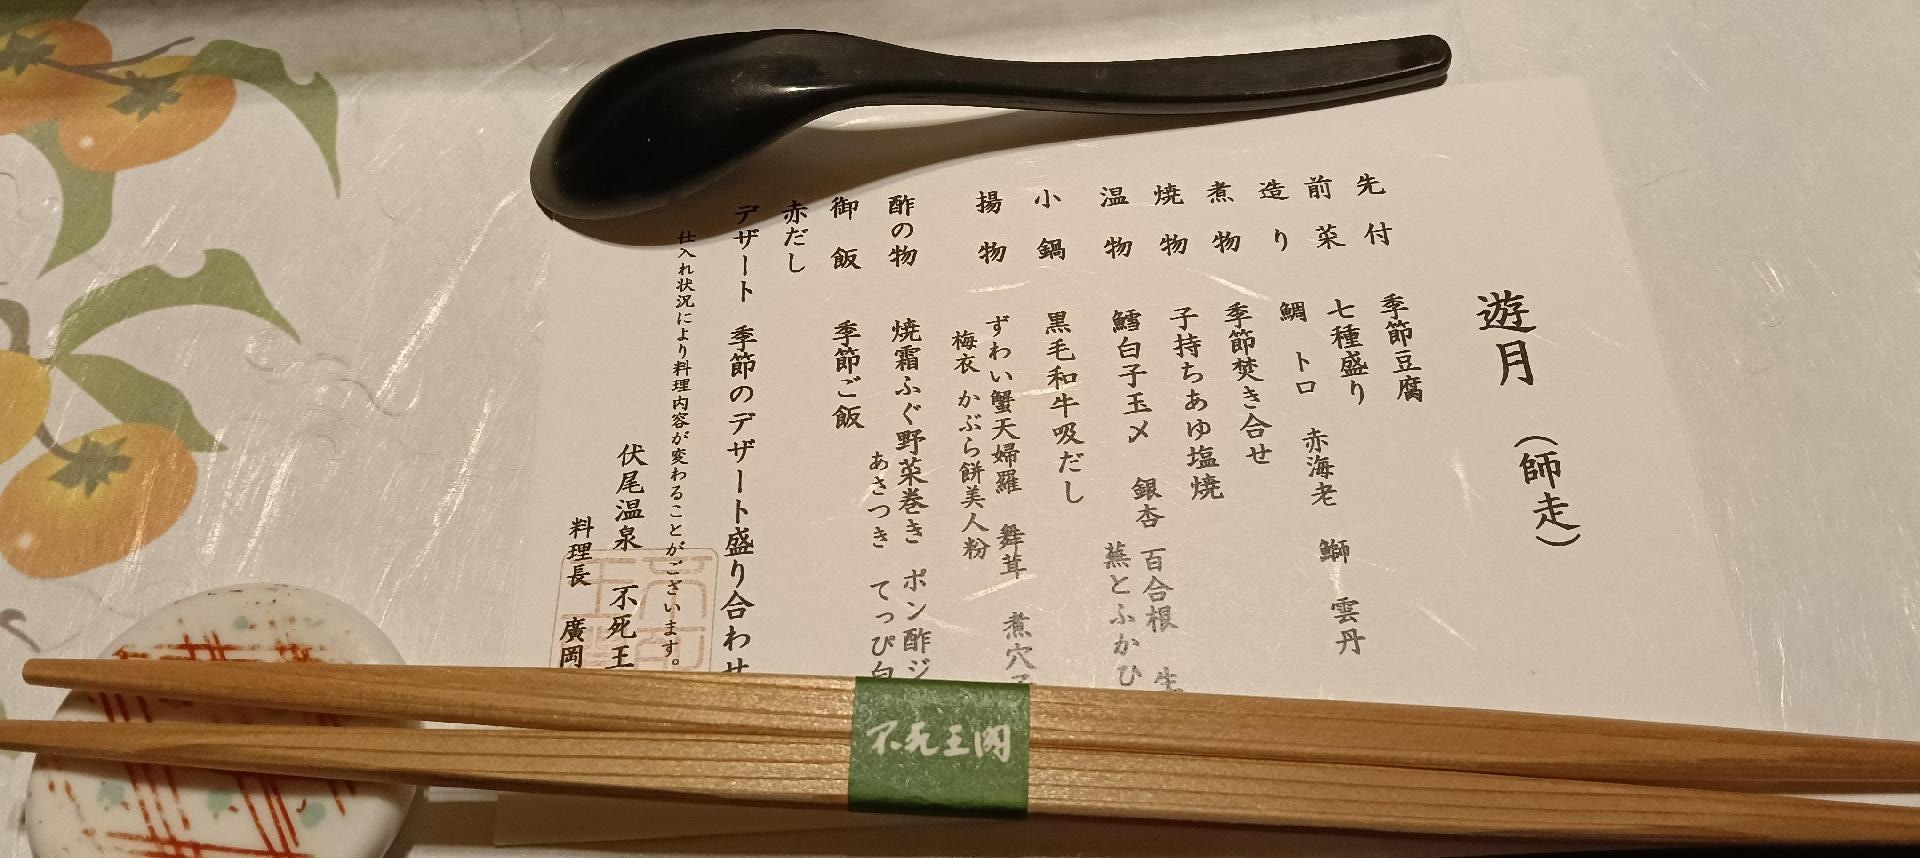 遊月（師走）
先付 季節豆腐
前菜 七種盛り
造り 鯛 トロ 赤海老 鰤 雲丹
煮物 季節焚き合せ
焼物 子持ちあゆ塩焼
温物 鱈白子玉〆 銀杏 百合根 生
蕪とふかひ
小鍋 黒毛和牛吸だし
揚物 ずわい蟹天婦羅 舞茸 煮穴子
梅衣 かぶら餅美人粉
酢の物 焼霜ふぐ野菜巻き ポン酢ジ
あさつき てっぴ白
御飯 季節ご飯
赤だし
デザート 季節のデザート盛り合わせ
仕入れ状況により料理内容が変わることがございます。
伏尾温泉 不死王
料理長 廣岡
不死王閣